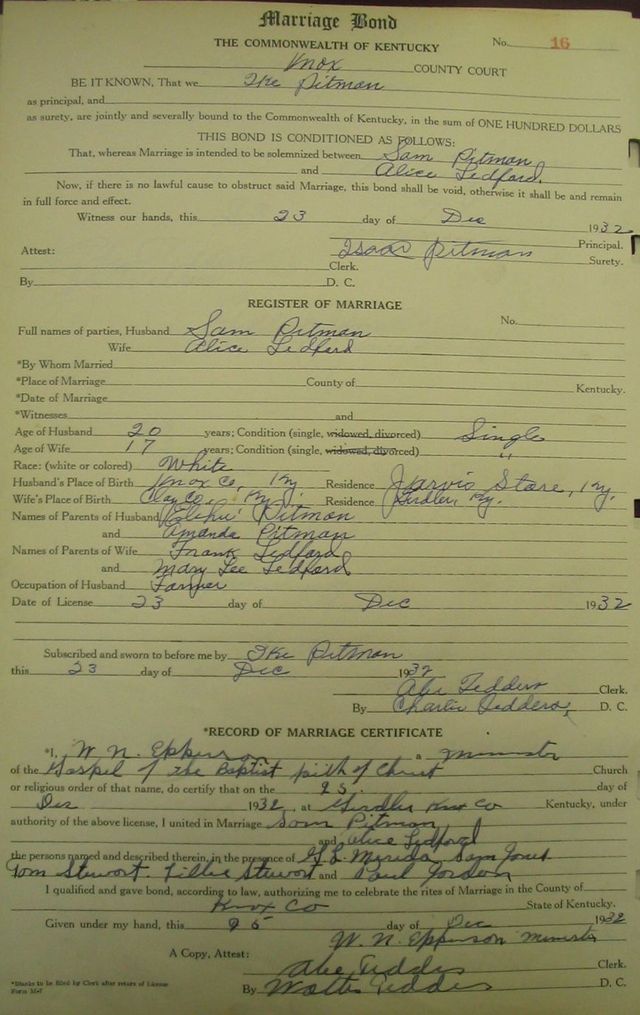 Marriage Bond
THE COMMONWEALTH OF KENTUCKY No. 16
Knox COUNTY COURT
BE IT KNOWN, That we Ike Pitman
as principal, and
as surety, are jointly and severally bound to the Commonwealth of Kentucky, in the sum of ONE HUNDRED DOLLARS
THIS BOND IS CONDITIONED AS FOLLOWS:
That, whereas Marriage is intended to be solemnized between Sam Pitman
and Alice Ledford
Now, if there is no lawful cause to obstruct said Marriage, this bond shall be void, otherwise it shall be and remain
in full force and effect.
Witness our hands, this 23 day of Dec 1932
Isaac Pitman Principal.
Attest: Surety.
Clerk.
By D. C.
REGISTER OF MARRIAGE
No.
Full names of parties, Husband Sam Pitman
Wife Alice Ledford
*By Whom Married
*Place of Marriage County of Kentucky.
*Date of Marriage
*Witnesses and
Age of Husband 20 years; Condition (single, widowed, divorced) Single
Age of Wife 17 years; Condition (single, widowed, divorced) "
Race: (white or colored) White
Husband's Place of Birth Knox Co, Ky. Residence Jarvis Store, Ky,
Wife's Place of Birth Clay Co, Ky. Residence Girdler, Ky.
Names of Parents of Husband Elihu Pitman
and Amanda Pitman
Names of Parents of Wife Frank Ledford
and Mary Lee Ledford
Occupation of Husband Farmer
Date of License 23 day of Dec 1932
Subscribed and sworn to before me by Ike Pitman
this 23 day of Dec 1932
Abe Tedders Clerk.
By Charlie Tedders, D. C.
*RECORD OF MARRIAGE CERTIFICATE
*I, W. N. Epperson a Minister
of the Gospel of the Baptist of Christ Church
or religious order of that name, do certify that on the 25 day of
Dec 1932, at Girdler Knox Co Kentucky, under
authority of the above license, I united in Marriage Sam Pitman
and Alice Ledford
the persons named and described therein, in the presence of G. L. Merida Sam Jones
Tom Stewort. Tillie Stewort and Paul Jordon
I qualified and gave bond, according to law, authorizing me to celebrate the rites of Marriage in the County of
Knox Co State of Kentucky.
Given under my hand, this 25 day of Dec 1932
W. N. Epperson Minister
A Copy, Attest:
Abe Teddes Clerk.
By Walter Teddes D. C.
*Blanks to be filed by Clerk after return of License